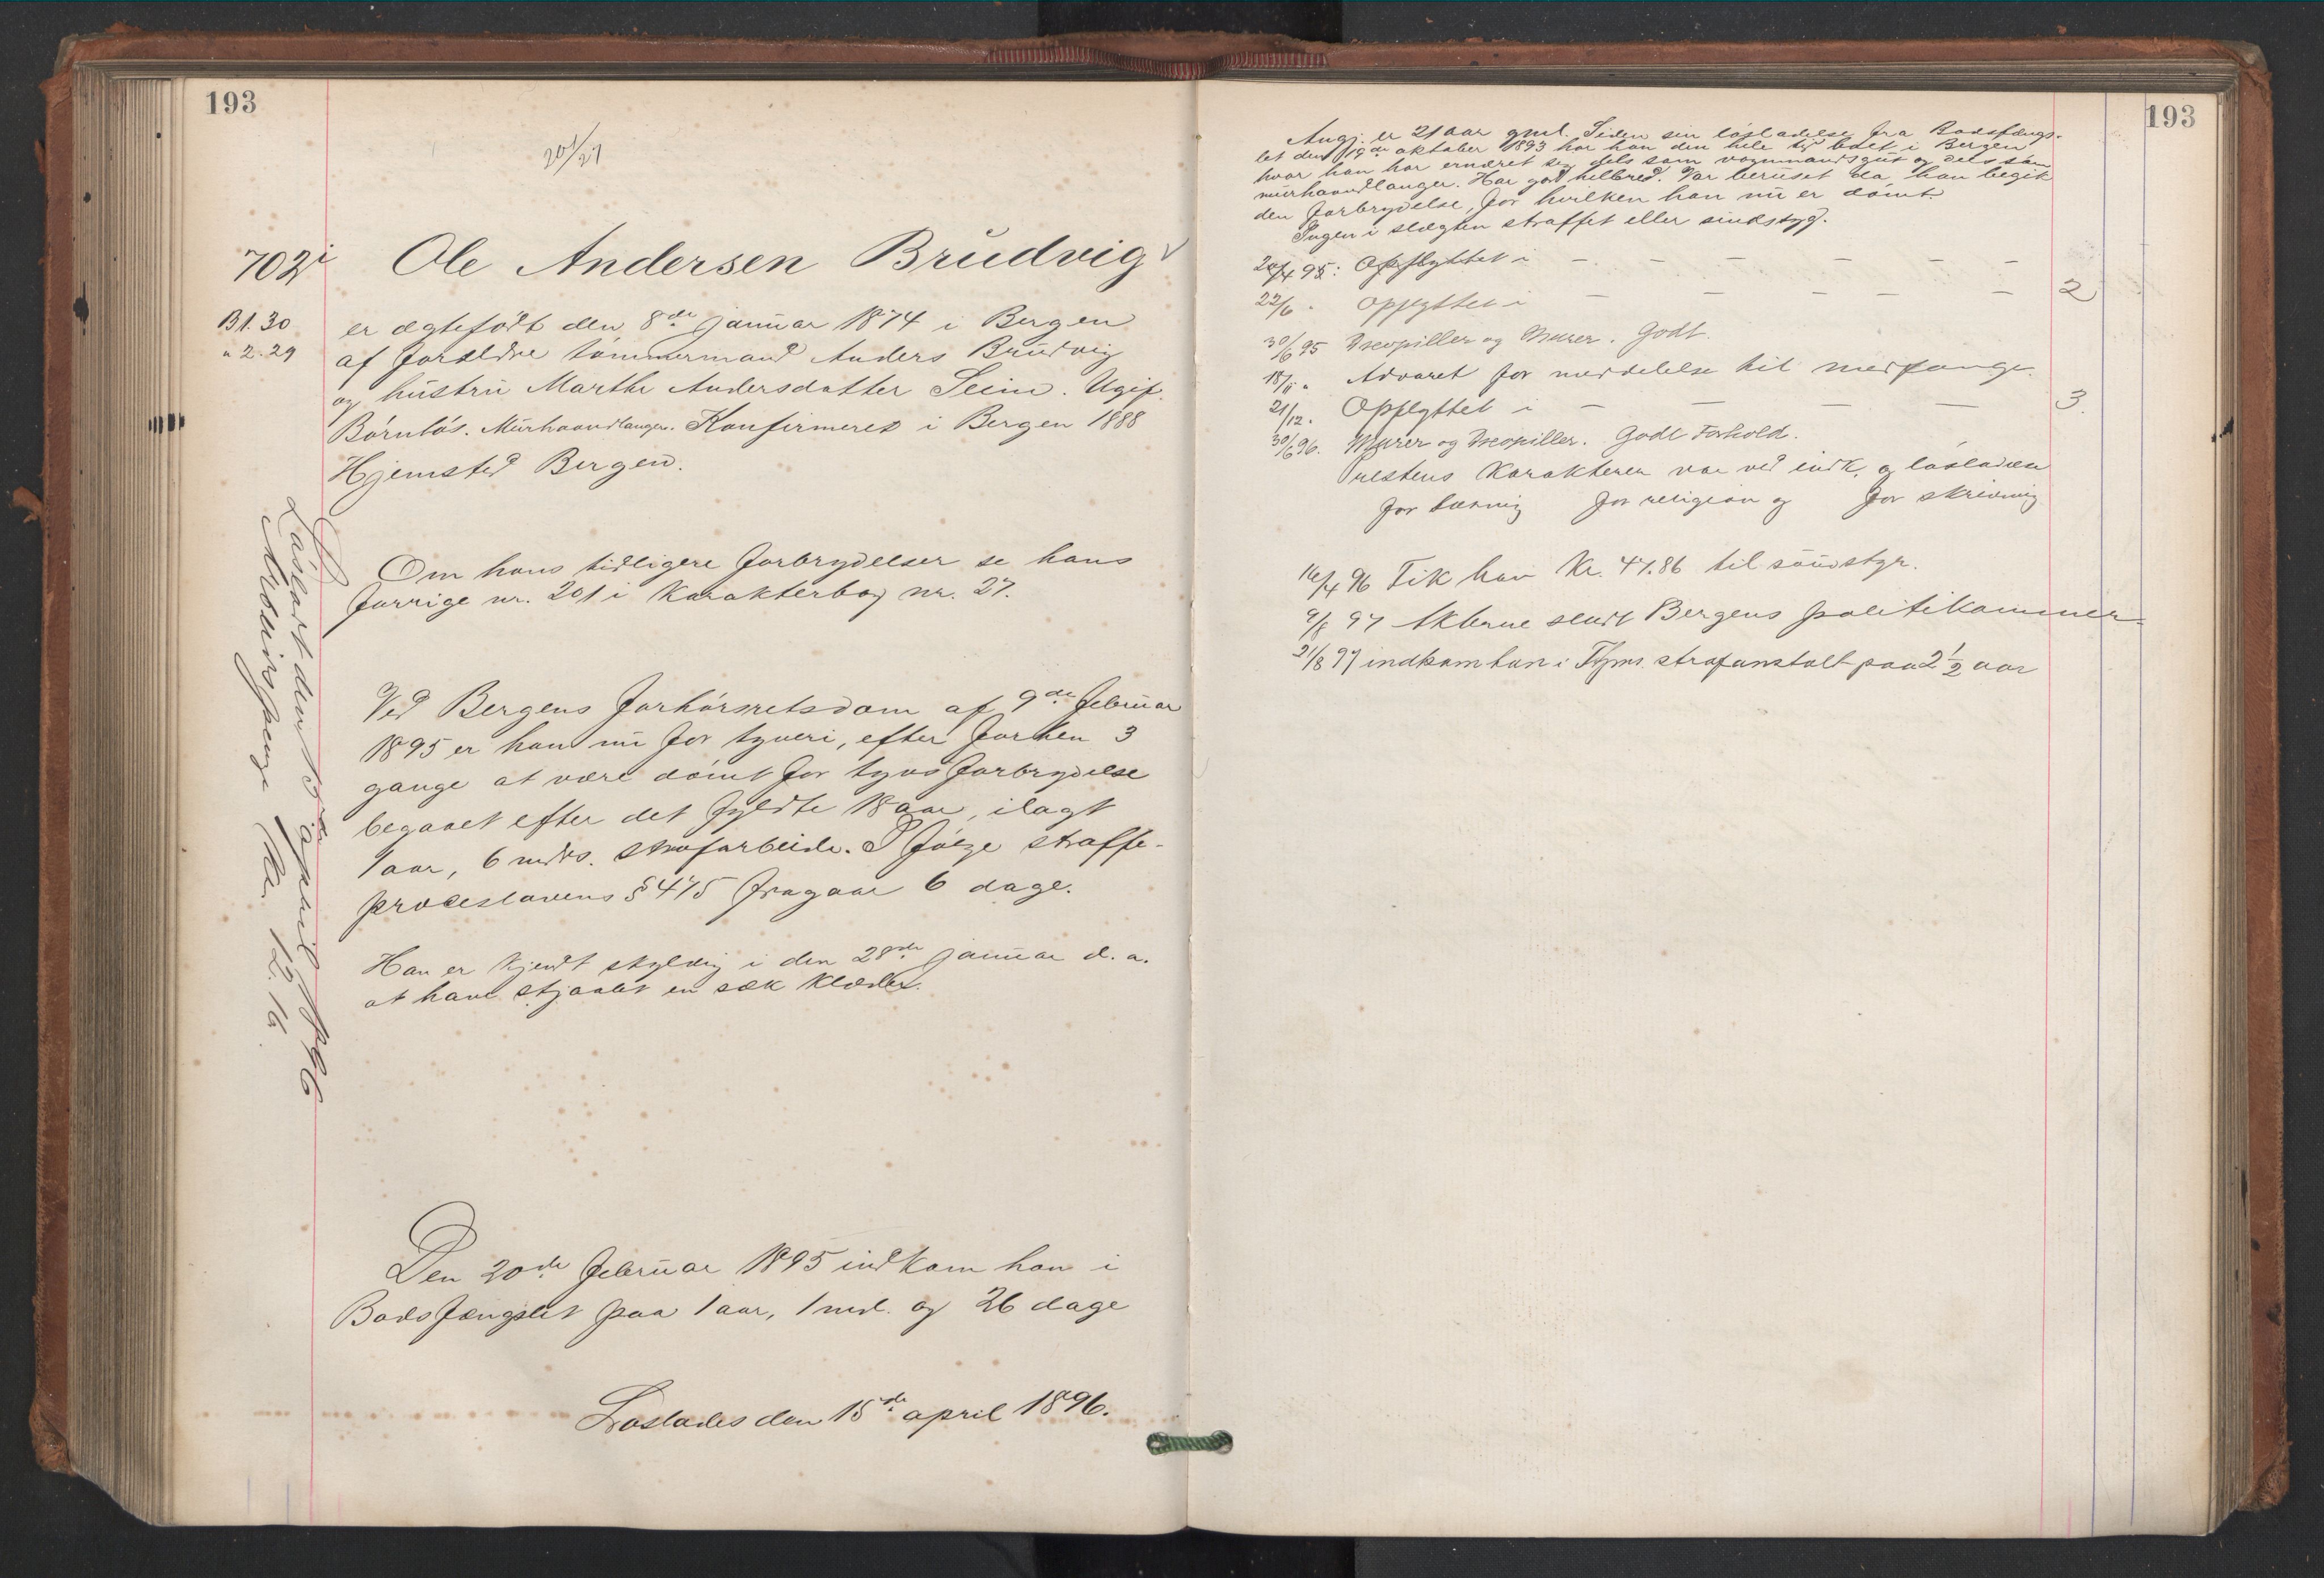 193
201/27
702 i
Ole Andersen Brudvig
B 1. 30
" 2. 29
er ægtefødt den 8de januar 1874 i Bergen
af forældre tømmermand Anders Brudvig
og hustru Marthe Andersdatter Seim. Ugift.
Børnløs. Murhaandlanger. Konfirmeret i Bergen 1888
Hjemsted Bergen.
Om hans tidligere forbrydelser se hans
forrige nr. 201 i Karakterbog nr. 27.
Ved Bergens forhørsretsdom af 9de februar
1895 er han nu for tyveri, efter forhen 3
gange at være dømt for tyvsforbrydelse
begaaet efter det fyldte 18 aar, ilagt
1 aar, 6 mdrs. strafarbeide. I følge straffe-
proceslovens § 475 fragaar 6 dage.
Han er kjendt skyldig i den 28de januar d. a.
at have stjaalet en sæk klæder.
Den 20de februar 1895 indkom han i
Bodsfængslet paa 1 aar, 1 md. og 26 dage
Løslades den 15de april 1896.
Løsladt den 15de april 1896
Arbeidspenge Kr. 12.16
193
Angj. er 21 aar gml. Siden sin løsladelse fra Bodsfængs-
let den 19de oktober 1893 har han den hele tid boet i Bergen
hvor han har ernæret sig dels som vognmandsgut og dels som
murhaandlanger. Har god helbred. Var beruset da han begik
den forbrydelse, for hvilken han nu er dømt.
Ingen i slægten straffet eller sindssyg.
20/4 95: Opflyttet i — — — — — —
22/6 " Opflyttet i — — — — — 2
30/6 95 Dreopiller og Murer. Godt.
18/11 " Advaret for meddelelse til medfange.
21/12 " Opflyttet i — — — — 3.
30/6 96. Murer og Dreopiller. Godt Forhold.
Prestens Karakterer var ved indk. og løsladelse
for læsning for religion og for skrivning
16/4 96 Fik han Kr. 47.86 til
9/8 97 Akterne sendt Bergens politikammer
21/8 97 indkom han i Thjms. strafanstalt paa 2 1/2 aar